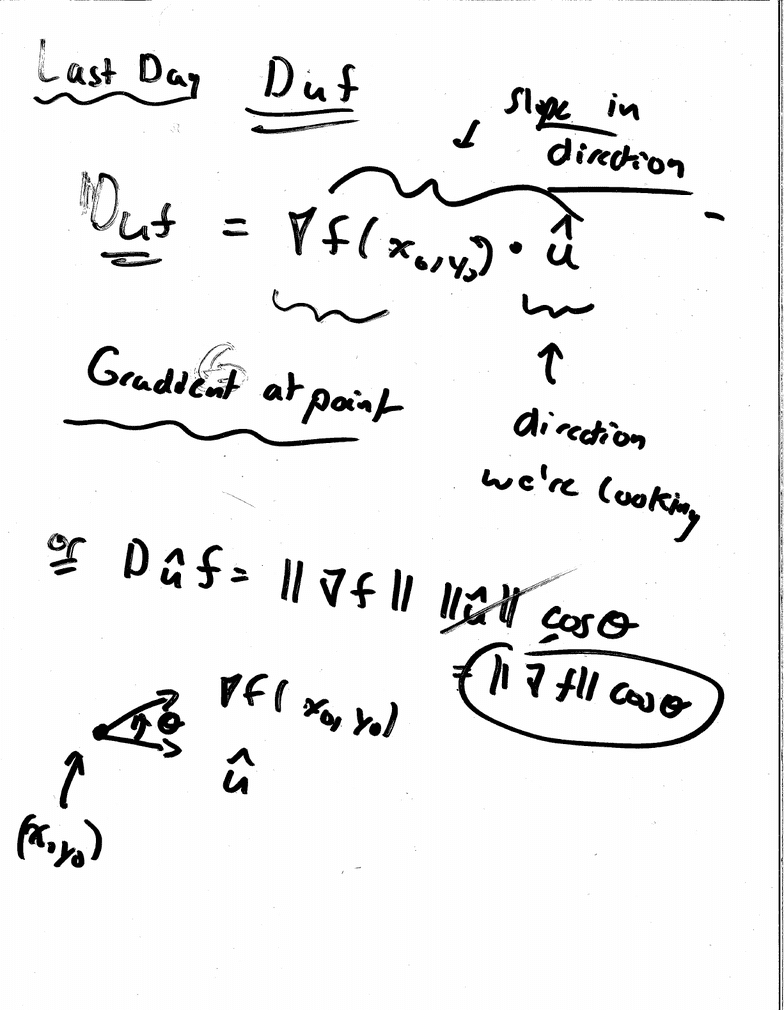 Last Day Duf
slope in
direction
Duf = ∇f(x₀,y₀) • û
Graddent at point
direction
we're looking
or Dûf = || ∇f || ||û|| cosθ
= || ∇f || cosθ
∇f(x₀,y₀)
θ
û
(x₀,y₀)